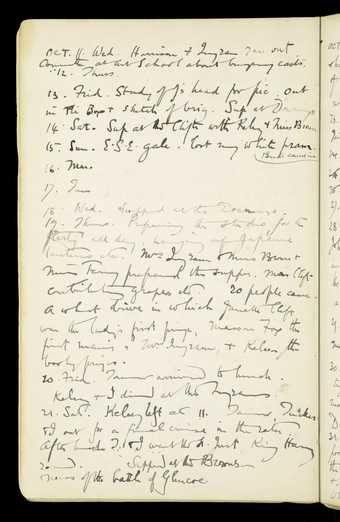 OCT. 11. Wed. Harrison & Ingram run out
Committee at Art School about buying casts.
12. Thurs.
13. Frid. Study of J's head for pic. out
in the Boy & sketch of brig. Sup at
14. Sat. Sup at the Clifts with Kelsey & Miss Brown
15. Sun. E.S.E gale. lost my white pram.
16. Mon.
17. Tues
18. Wed. Supped at the Downings.
19. Thurs. Preparing the Studio for the
party all day hanging up Japanese
lanterns etc. Mrs Ingram & Miss Brown &
Miss preparing the supper. Mrs Clift
contributing grapes etc 20 people came.
A whist drive in which Janette Clift
won the lady's first prize, Mason Fox the
first man's, Mrs Ingram, & Kelsey the
booby prizes.
20. Frid. arrived to lunch.
Kelsey & I dined at the Ingrams.
21. Sat. Kelsey left at 11.
& I out for a final cruise in the
After lunch & I went to St Just. King Harry
round. Supped at the Browns
news of the battle of Glencoe